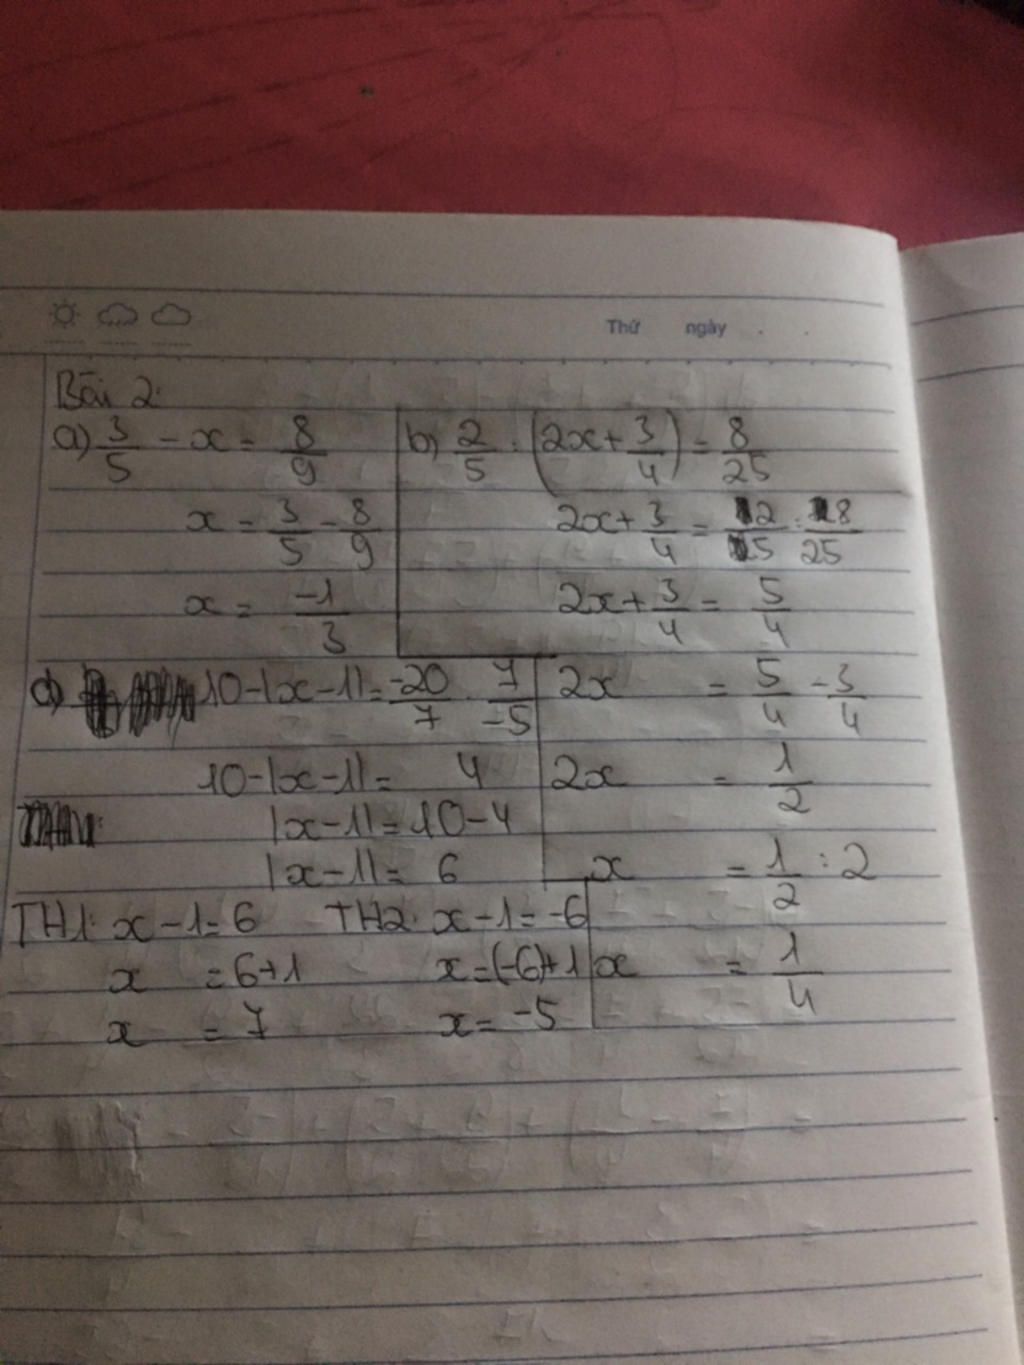 Thứ ngày
Bài 2:
a) 3/5 - x = 8/9
x = 3/5 - 8/9
x = -1/3
b) 2/5 : (2x + 3/4) = 8/25
2x + 3/4 = 2/5 : 8/25
2x + 3/4 = 5/4
2x = 5/4 - 3/4
2x = 1/2
x = 1/2 : 2
x = 1/4
d) 10 - |x - 1| = -20/7 . 7/-5
10 - |x - 1| = 4
|x - 1| = 10 - 4
|x - 1| = 6
TH1: x - 1 = 6
x = 6 + 1
x = 7
TH2: x - 1 = -6
x = (-6) + 1
x = -5